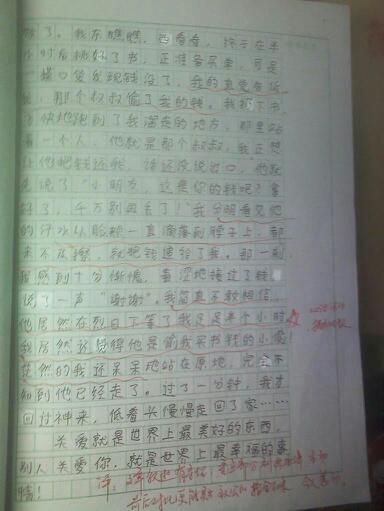 了。我东瞧瞧，西看看，终于在半
小时后挑好了书，正准备买单，可是
摸口袋发现钱没了，我的直觉告诉
我，那个叔叔偷了我的钱。我放下书
飞快地跑到了我溜走的地方，那里站
着一个人，他就是那个叔叔，我正想
让他把钱还我，话还没说出口，他就
先说了"小朋友，这是你的钱吧？拿
好了，千万别再丢了！"我分明看见他
的汗水从脸颊一直滴落到脖子上，都
来不及擦，就把钱递给了我。那一刻
我感到十分惭愧，羞涩地接过了钱
说了一声"谢谢"。我简直不敢相信，
他居然在烈日下等了我足足半个小时
我居然还觉得他是偷我买书钱的小偷！
茫然的我还呆呆地站在原地，完全不
知到他已经走了。过了一分钟，我才
回过神来，低着头慢慢走回了家……
关爱就是世界上最美好的东西，
别人关爱你，就是世界上最幸福的事
情！
评：
前后对比